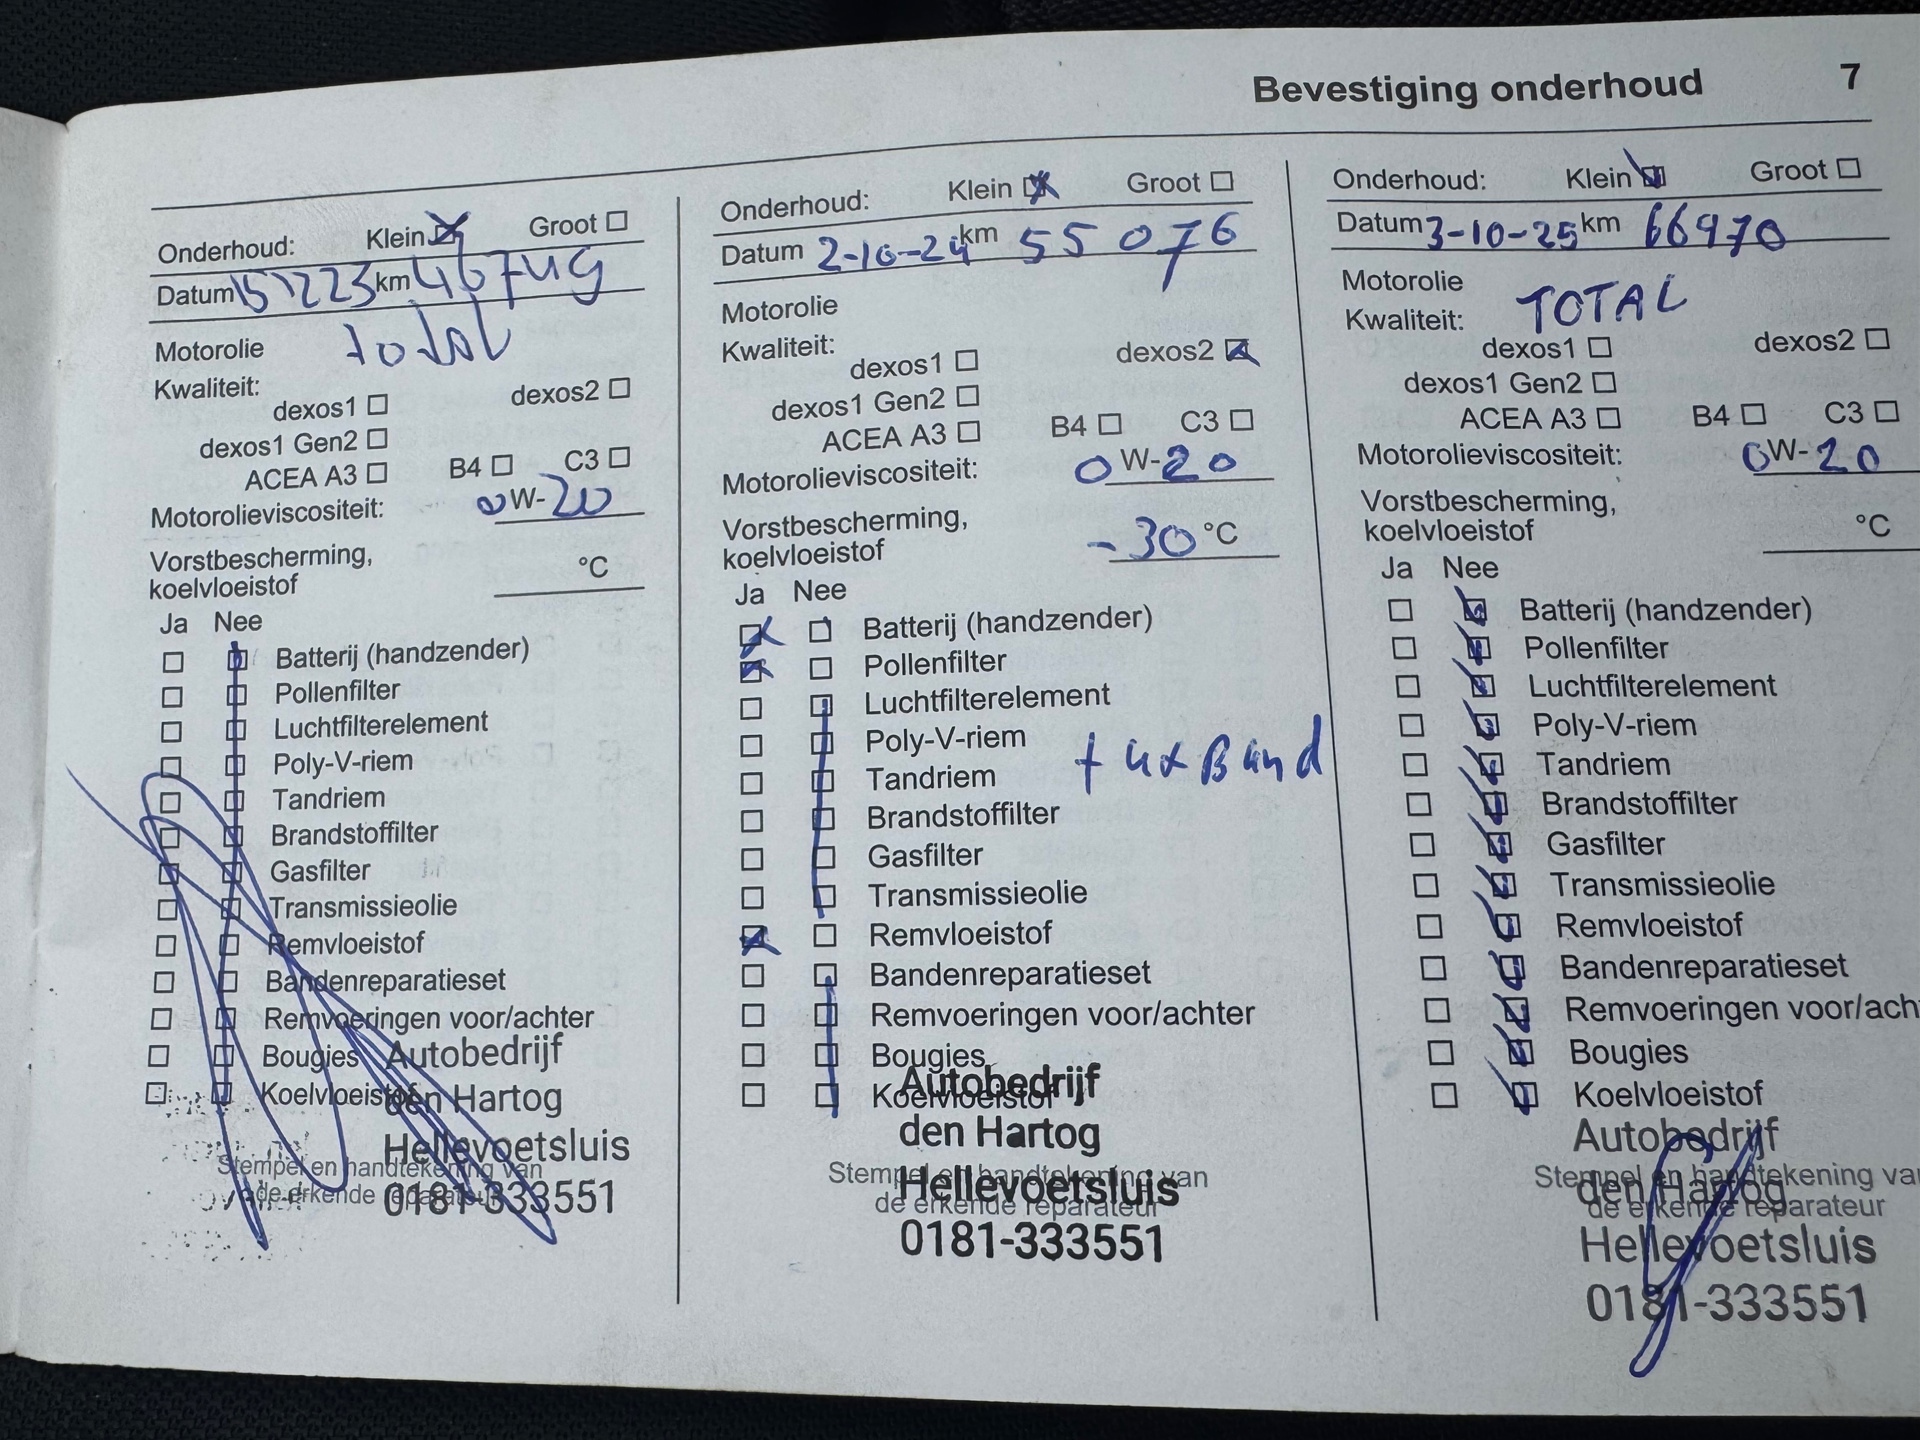 Bevestiging onderhoud 7
Onderhoud: Klein Groot
Datum km
Motorolie total
Kwaliteit:
dexos1 dexos2
dexos1 Gen2
ACEA A3 B4 C3
Motorolieviscositeit: 0W-20
Vorstbescherming,
koelvloeistof °C
Ja Nee
Batterij (handzender)
Pollenfilter
Luchtfilterelement
Poly-V-riem
Tandriem
Brandstoffilter
Gasfilter
Transmissieolie
Remvloeistof
Bandenreparatieset
Remvoeringen voor/achter
Bougies
Koelvloeistof
Autobedrijf
den Hartog
Hellevoetsluis
Stempel en handtekening van
de erkende reparateur
0181-333551
Onderhoud: Klein Groot
Datum 2-10-24 km 55076
Motorolie
Kwaliteit:
dexos1 dexos2
dexos1 Gen2
ACEA A3 B4 C3
Motorolieviscositeit: 0W-20
Vorstbescherming,
koelvloeistof -30 °C
Ja Nee
Batterij (handzender)
Pollenfilter
Luchtfilterelement
Poly-V-riem
+ 4x Band
Tandriem
Brandstoffilter
Gasfilter
Transmissieolie
Remvloeistof
Bandenreparatieset
Remvoeringen voor/achter
Bougies
Koelvloeistof
Autobedrijf
den Hartog
Stempel en handtekening van
Hellevoetsluis
de erkende reparateur
0181-333551
Onderhoud: Klein Groot
Datum 3-10-25 km 66970
Motorolie
Kwaliteit: TOTAL
dexos1 dexos2
dexos1 Gen2
ACEA A3 B4 C3
Motorolieviscositeit: 0W-20
Vorstbescherming,
koelvloeistof °C
Ja Nee
Batterij (handzender)
Pollenfilter
Luchtfilterelement
Poly-V-riem
Tandriem
Brandstoffilter
Gasfilter
Transmissieolie
Remvloeistof
Bandenreparatieset
Remvoeringen voor/ach
Bougies
Koelvloeistof
Autobedrijf
Stempel en handtekening va
den Hartog
de erkende reparateur
Hellevoetsluis
0181-333551